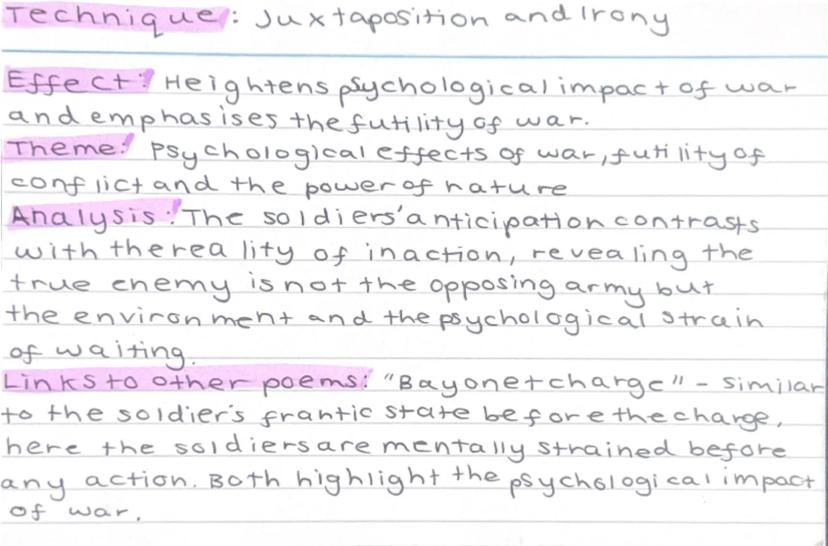 Technique: Juxtaposition and Irony
Effect: Heightens psychological impact of war
and emphasises the futility of war.
Theme: Psychological effects of war, futility of
conflict and the power of nature
Analysis: The soldiers' anticipation contrasts
with the reality of inaction, revealing the
true enemy is not the opposing army but
the environment and the psychological strain
of waiting.
Links to other poems: "Bayonet charge" - similar
to the soldier's frantic state before the charge,
here the soldiers are mentally strained before
any action. Both highlight the psychological impact
of war.